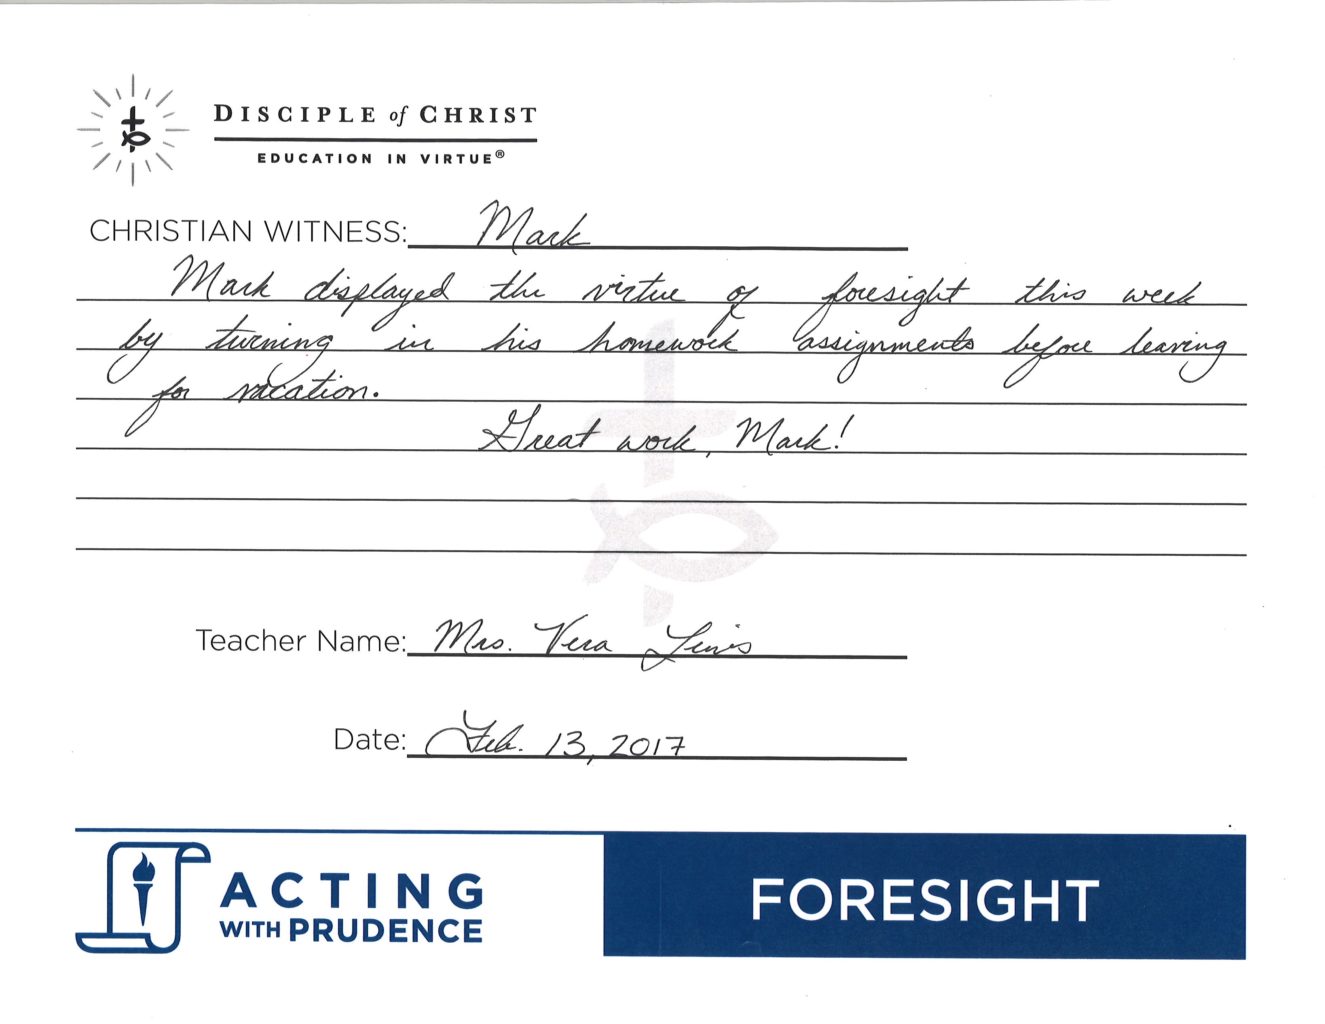 DISCIPLE of CHRIST
EDUCATION IN VIRTUE®
CHRISTIAN WITNESS: Mark
Mark displayed the virtue of foresight this week
by turning in his homework assignments before leaving
for vacation.
Great work, Mark!
Teacher Name: Mrs. Vera
Date: Feb. 13, 2017
ACTING
WITH PRUDENCE
FORESIGHT